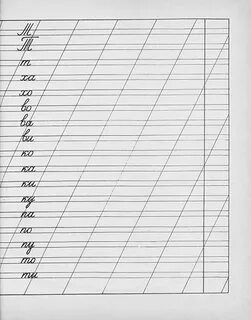 Т
Т
т
ха
хо
во
ва
ви
ко
ка
ки
ку
па
по
пу
то
ти